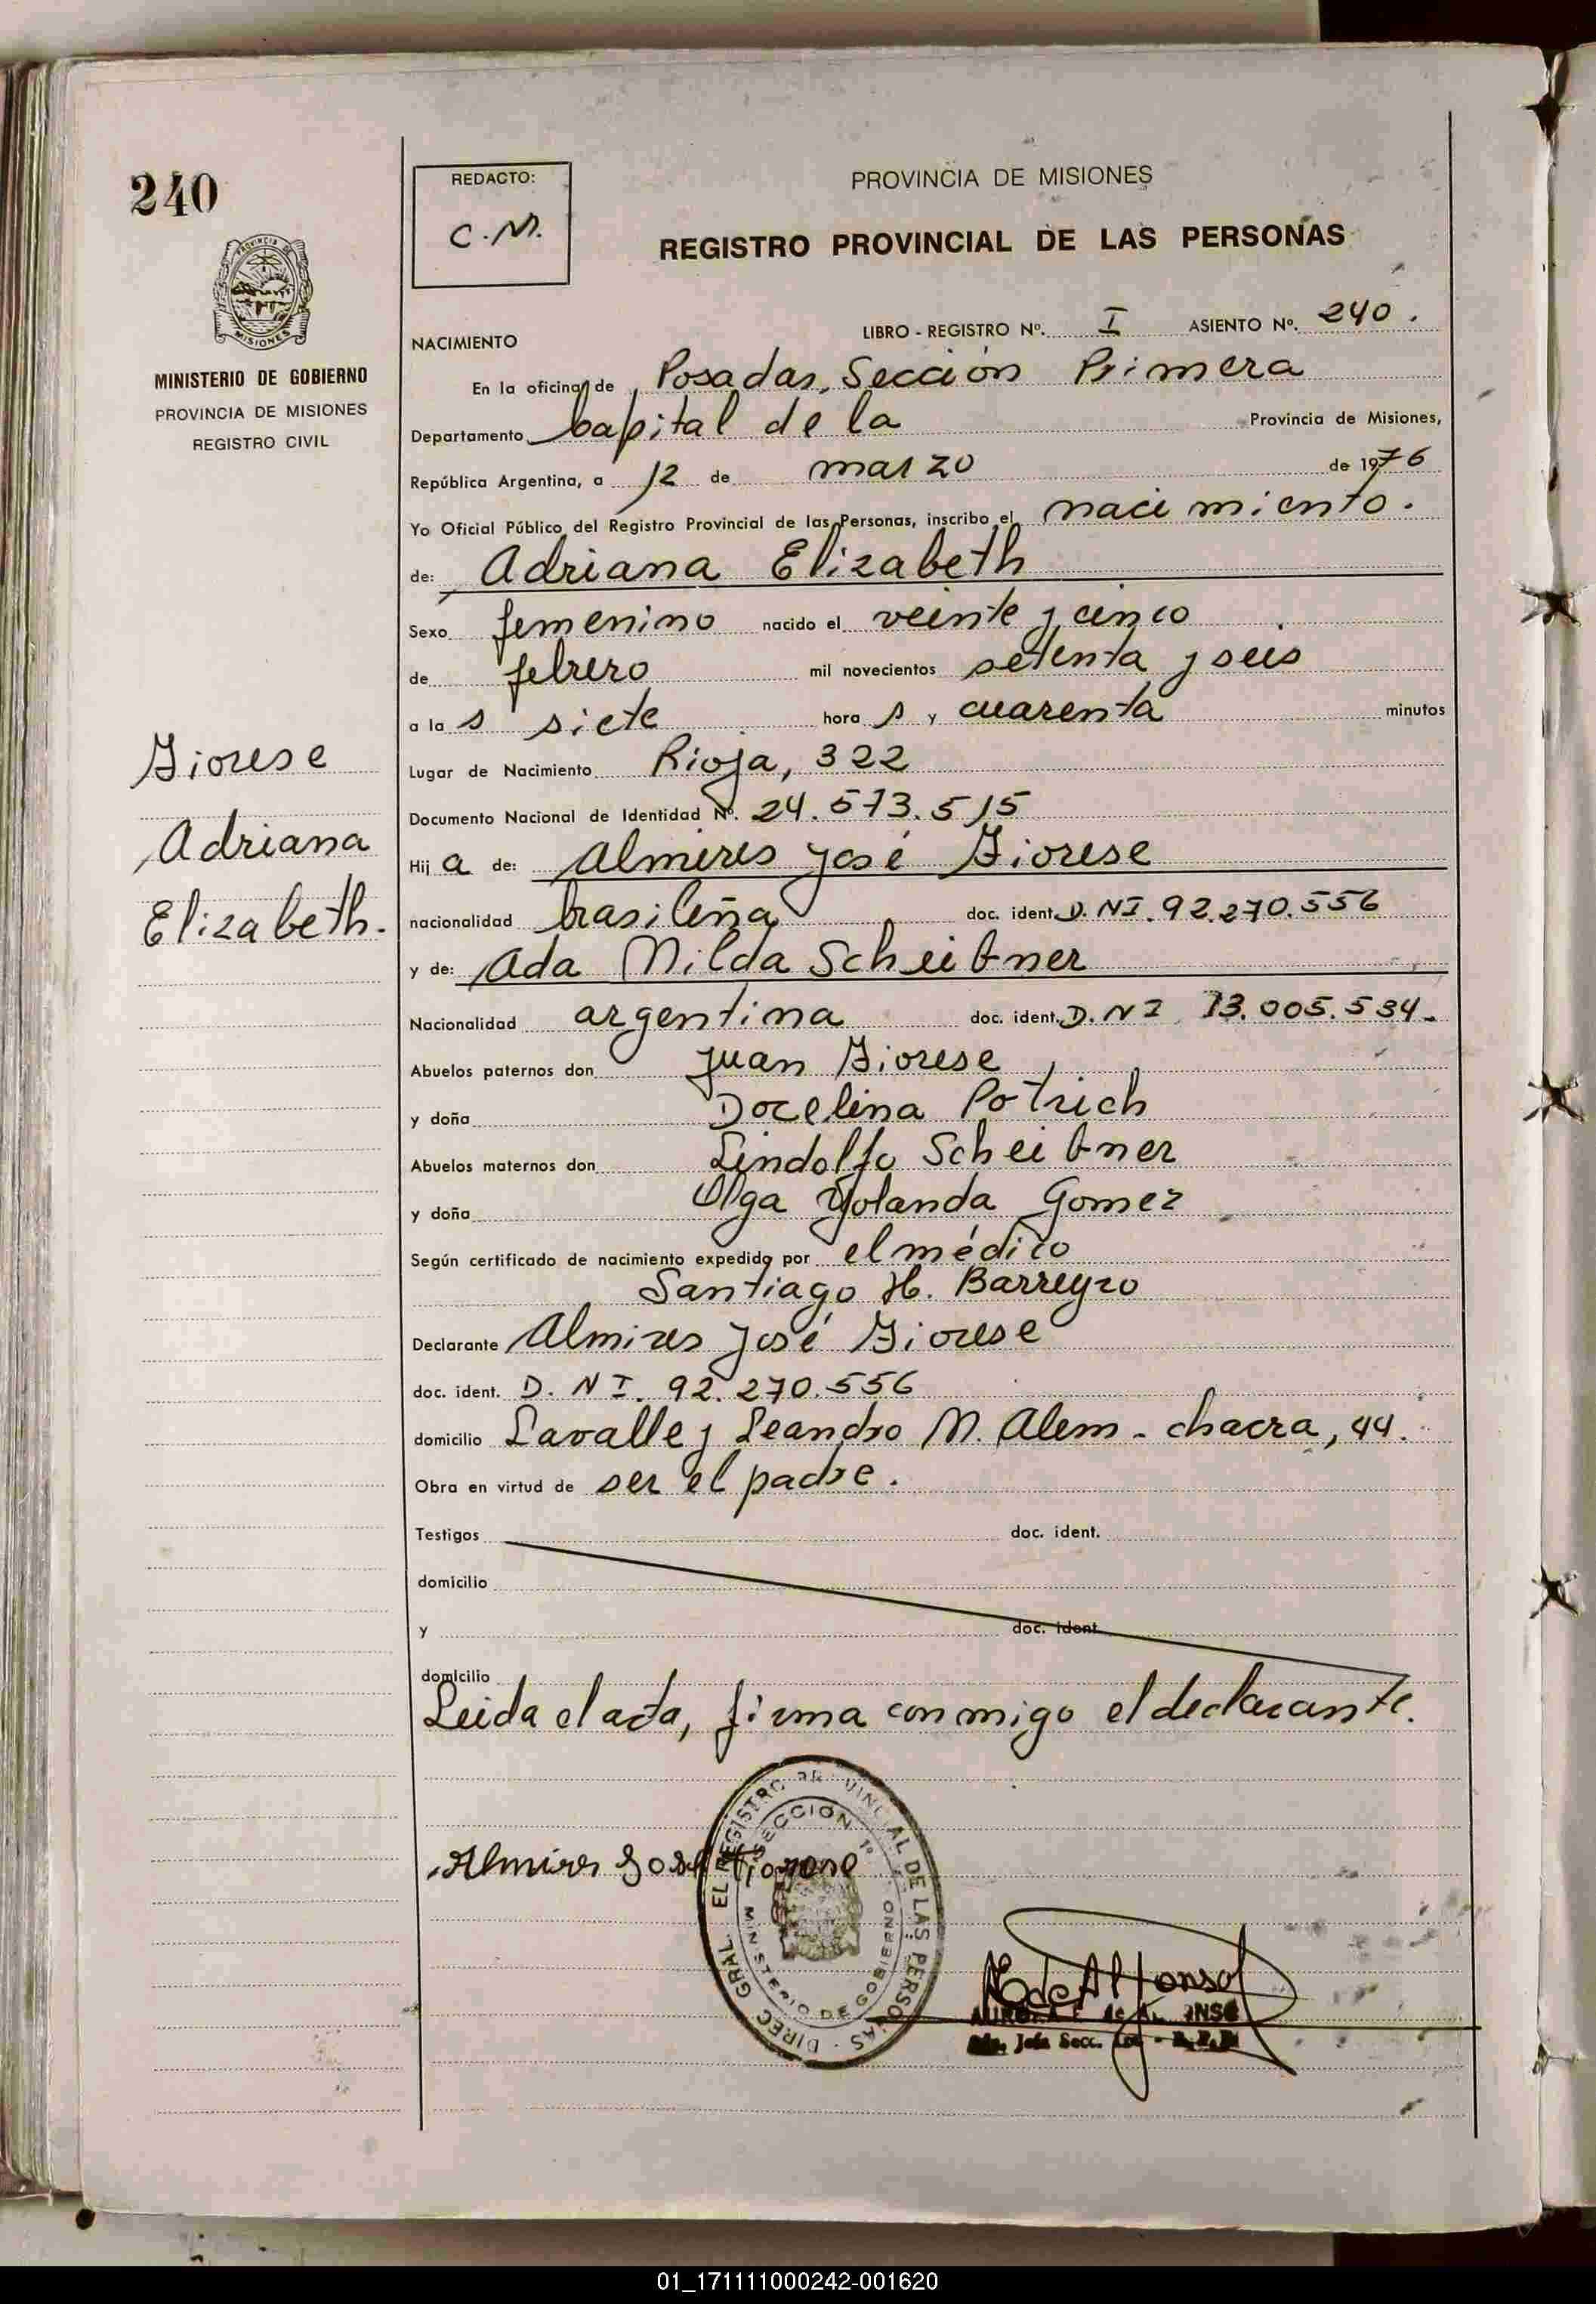 240
REDACTO:
C.M.
PROVINCIA DE MISIONES
REGISTRO PROVINCIAL DE LAS PERSONAS
PROVINCIA DE
MISIONES
MINISTERIO DE GOBIERNO
PROVINCIA DE MISIONES
REGISTRO CIVIL
NACIMIENTO
LIBRO - REGISTRO Nº. I ASIENTO Nº. 240.
En la oficina de Posadas, Sección Primera
Departamento Capital de la Provincia de Misiones,
República Argentina, a 12 de marzo de 1976
Yo Oficial Público del Registro Provincial de las Personas, inscribo el nacimiento.
de: Adriana Elizabeth
Sexo femenino nacido el veinte y cinco
de febrero mil novecientos setenta y seis
a la s siete hora s y cuarenta minutos
Lugar de Nacimiento Rioja, 322
Documento Nacional de Identidad Nº. 24.573.515
Hij a de: Almires José Fiorese
nacionalidad brasileña doc. ident. D.NI. 92.270.556
y de: Ada Nilda Scheibner
Nacionalidad argentina doc. ident. D.NI 13.005.534.
Abuelos paternos don Juan Fiorese
y doña Docelina Potrich
Abuelos maternos don Lindolfo Scheibner
y doña Olga Yolanda Gomez
Según certificado de nacimiento expedido por el médico
Santiago H. Barreyro
Declarante Almires José Fiorese
doc. ident. D. NI. 92.270.556
domicilio Lavalle y Leandro M. Alem - chacra, 44.
Obra en virtud de ser el padre.
Testigos doc. ident.
domicilio
y doc. ident.
domicilio
Leida el acta, firma conmigo el declarante.
Fiorese
Adriana
Elizabeth.
Almires José Fiorese
DIREC. GRAL. EL REGISTRO PROVINCIAL DE LAS PERSONAS
SECCION 1º
MINISTERIO DE GOBIERNO
de Alfonso
01_171111000242-001620